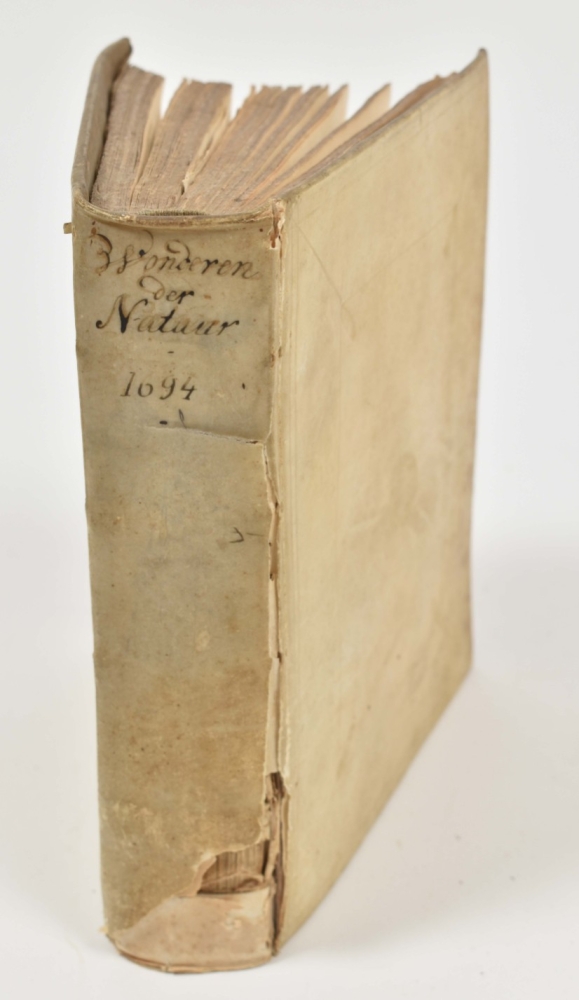 Wonderen
der
Natuur
1694